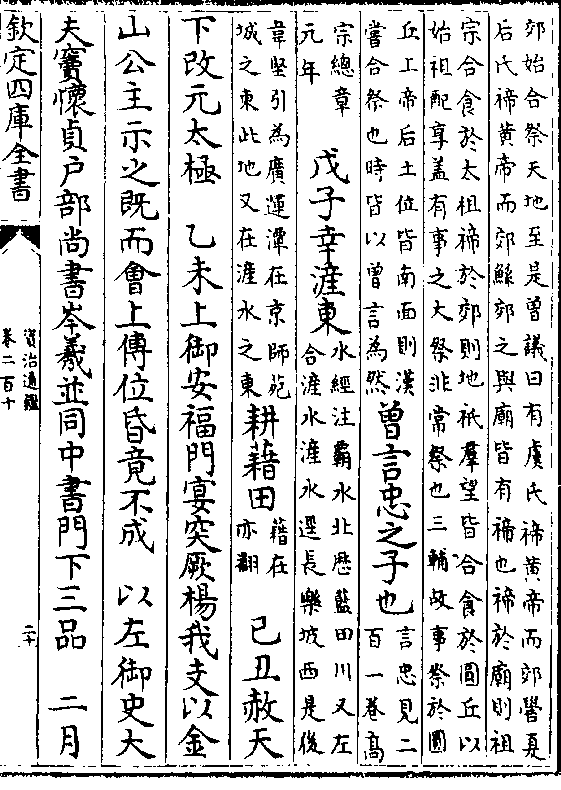 郊始合祭天地至是曾議曰有虞氏禘黃帝而郊嚳夏
后氏禘黃帝而郊鯀郊之與廟皆有禘也禘於廟則祖
宗合食於太祖禘於郊則地祇羣望皆合食於圓丘以
始祖配享蓋有事之大祭非常祭也三輔故事祭於圓
丘上帝后土位皆南面則漢
嘗合祭也時皆以曾言為然
曾言忠之子也
言忠見二
百一卷高
宗總章
元年
戊子幸滻東
水經注霸水北歷藍田川又左
合滻水滻水逕長樂坡西是後
韋堅引為廣運潭在京師苑
城之東此地又在滻水之東
耕藉田
藉在
亦翻
己丑赦天
下改元太極 乙未上御安福門宴突厥楊我支以金
山公主示之既而會上傳位昏竟不成 以左御史大
夫竇懷貞戶部尚書岑羲並同中書門下三品 二月
欽定四庫全書
資治通鑑
卷二百十
二十